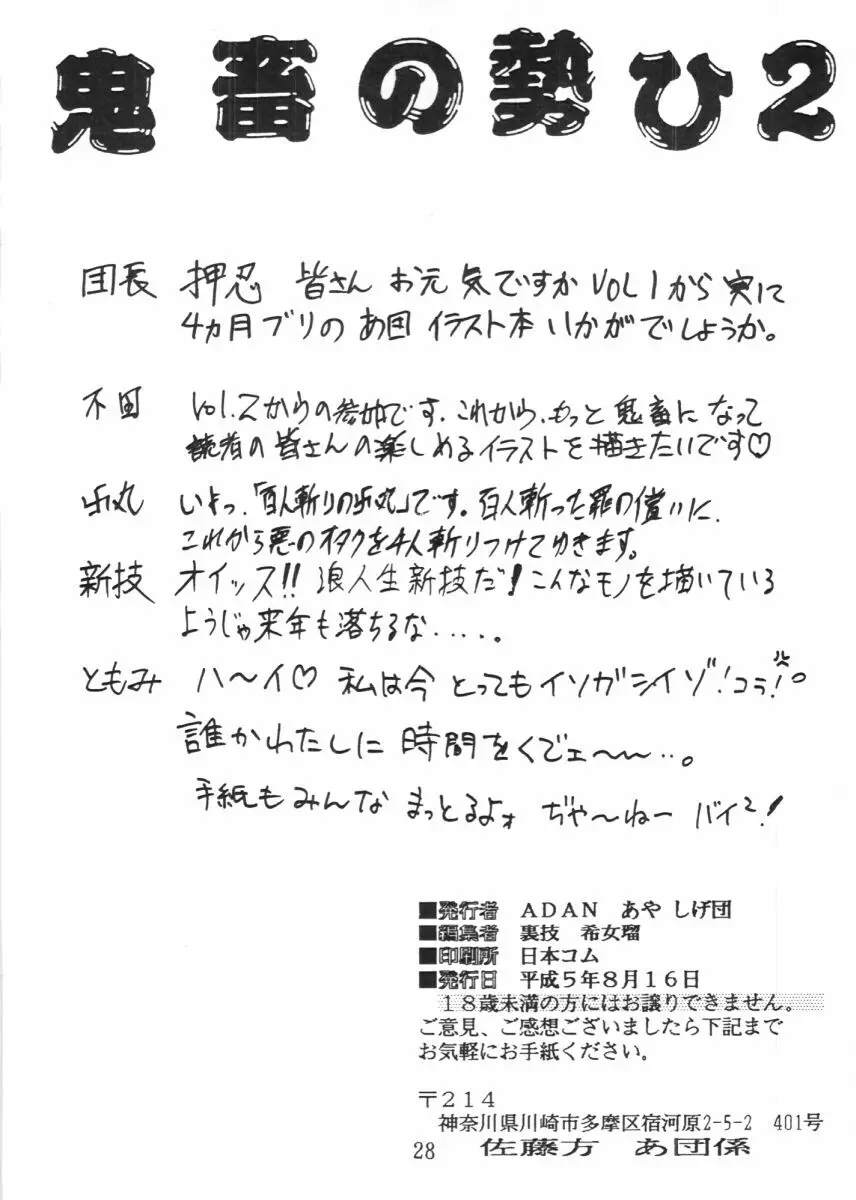 鬼畜の勢ひ2
団長 押忍 皆さん お元気ですか VOL1から 実に
4ヵ月ブリの あ団 イラスト本 いかがでしょうか。
不田 Vol.2からの参加です。これから、もっと鬼畜になって
読者の皆さんの楽しめるイラストを描きたいです♡
いよっ、「百人斬りの丸」です。百人斬った罪の償いに、
これから悪のオタクを4人斬りつけてゆきます。
新技 オイッス!! 浪人生新技だ!こんなモノを描いている
ようじゃ来年も落ちるな.....。
ともみ ハ〜イ♡ 私は今 とってもイソガシイゾ!コラ!。
誰かわたしに 時間をくでェ〜〜...。
手紙もみんな まっとるよォ ぢゃ〜ねー バイ2!
■発行者 ADAN あや しげ団
■編集者 裏技 希女瑠
■印刷所 日本コム
■発行日 平成5年8月16日
18歳未満の方にはお譲りできません。
ご意見、ご感想ございましたら下記まで
お気軽にお手紙ください。
〒214
神奈川県川崎市多摩区宿河原2-5-2 401号
28 佐藤方 あ団係